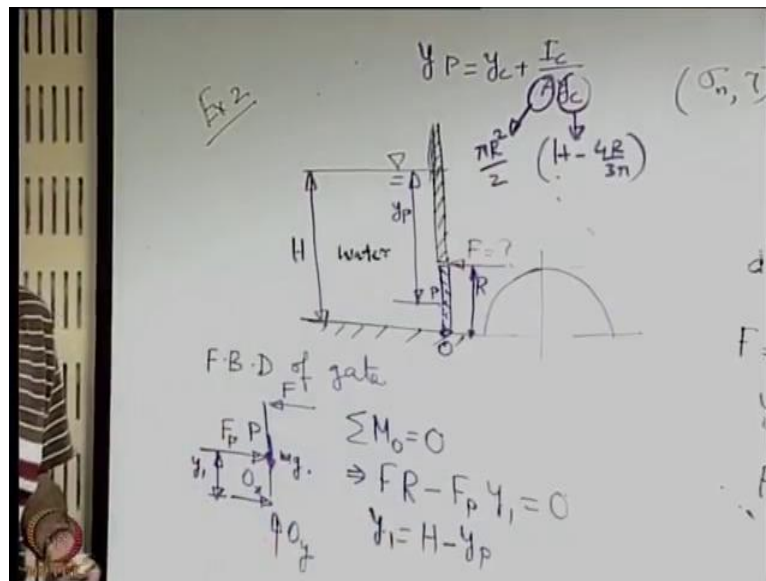 Ex 2
y P = y_c + I_c / A y_c
(σ_n, τ
πR²/2 (H - 4R/3π)
y_P
H water F = ?
P R
O
d
F =
F.B.D of gate
F
F_P P ΣM_o = 0
y_1 mg.
O_x ⇒ FR - F_P y_1 = 0
O_y y_1 = H - y_P